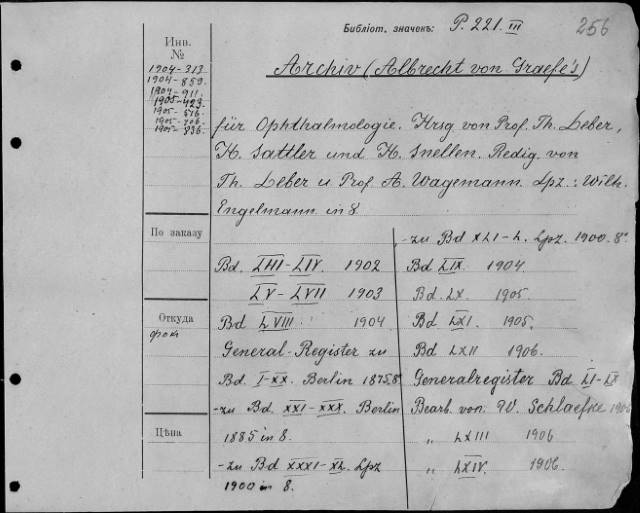 Библіот. значекъ: P. 221. III
256
Инв.
№
1904-313
1904-859
1904-911.
1905-423
1905-516
1905-706
1905-836
Archiv (Albrecht von Graefe's)
für Ophthalmologie. Hrsg von Prof. Th. Leber,
H. Sattler und H. Snellen. Redig. von
Th. Leber u Prof A. Wagemann. Lpz.: Wilh.
Engelmann in 8
По заказу
Откуда
фон
Цѣна
Bd. LIII-LIV. 1902
LV-LVII 1903
Bd LVIII 1904
General-Register zu
Bd. I-XX. Berlin 1875.8°
-zu Bd. XXI-XXX. Berlin
1885 in 8.
-zu Bd XXXI-XL. Lpz
1900 in 8.
-zu Bd XLI-L. Lpz. 1900. 8°
Bd LIX 1904.
Bd. LX. 1905.
Bd LXI. 1905.
Bd LXII 1906.
Generalregister Bd LI-LX
Bearb. von. W. Schlaefke
„ LXIII 1906
„ LXIV. 1906.